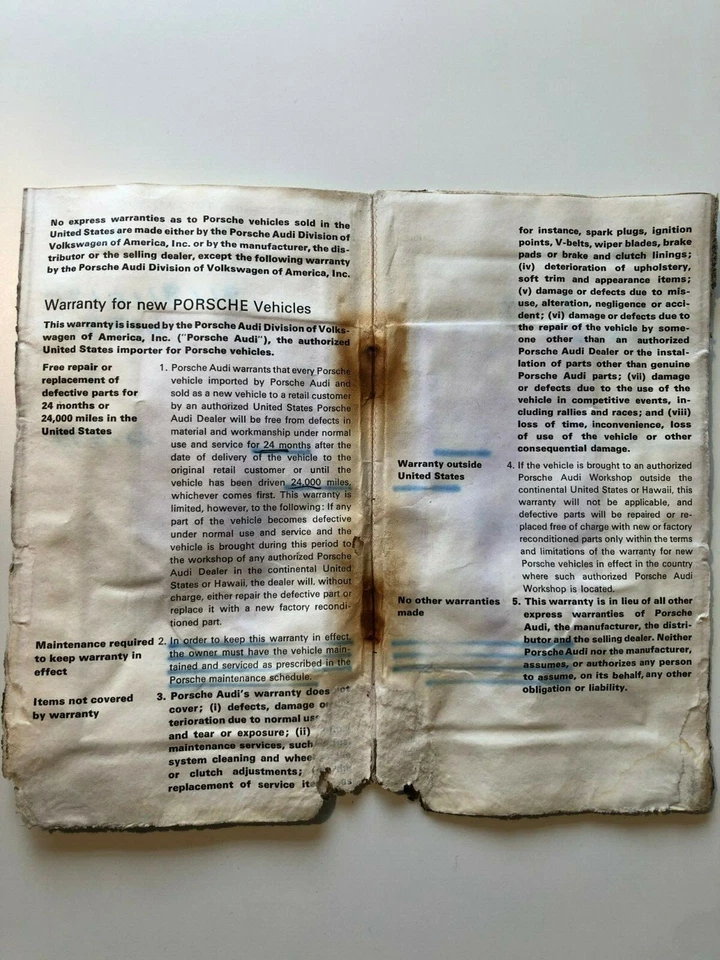 No express warranties as to Porsche vehicles sold in the
United States are made either by the Porsche Audi Division of
Volkswagen of America, Inc. or by the manufacturer, the dis-
tributor or the selling dealer, except the following warranty
by the Porsche Audi Division of Volkswagen of America, Inc.
Warranty for new PORSCHE Vehicles
This warranty is issued by the Porsche Audi Division of Volks-
wagen of America, Inc. ("Porsche Audi"), the authorized
United States importer for Porsche vehicles.
Free repair or
replacement of
defective parts for
24 months or
24,000 miles in the
United States
1. Porsche Audi warrants that every Porsche
vehicle imported by Porsche Audi and
sold as a new vehicle to a retail customer
by an authorized United States Porsche
Audi Dealer will be free from defects in
material and workmanship under normal
use and service for 24 months after the
date of delivery of the vehicle to the
original retail customer or until the
vehicle has been driven 24,000 miles,
whichever comes first. This warranty is
limited, however, to the following: If any
part of the vehicle becomes defective
under normal use and service and the
vehicle is brought during this period to
the workshop of any authorized Porsche
Audi Dealer in the continental United
States or Hawaii, the dealer will, without
charge, either repair the defective part or
replace it with a new factory recondi-
tioned part.
Maintenance required
to keep warranty in
effect
2. In order to keep this warranty in effect,
the owner must have the vehicle main-
tained and serviced as prescribed in the
Porsche maintenance schedule.
Items not covered
by warranty
3. Porsche Audi's warranty does
cover; (i) defects, damage
terioration due to normal
and tear or exposure; (ii)
maintenance services, such
system cleaning and
or clutch adjustments;
replacement of service
for instance, spark plugs, ignition
points, V-belts, wiper blades, brake
pads or brake and clutch linings;
(iv) deterioration of upholstery,
soft trim and appearance items;
(v) damage or defects due to mis-
use, alteration, negligence or acci-
dent; (vi) damage or defects due to
the repair of the vehicle by some-
one other than an authorized
Porsche Audi Dealer or the instal-
lation of parts other than genuine
Porsche Audi parts; (vii) damage
or defects due to the use of the
vehicle in competitive events, in-
cluding rallies and races; and (viii)
loss of time, inconvenience, loss
of use of the vehicle or other
consequential damage.
Warranty outside
United States
4. If the vehicle is brought to an authorized
Porsche Audi Workshop outside the
continental United States or Hawaii, this
warranty will not be applicable, and
defective parts will be repaired or re-
placed free of charge with new or factory
reconditioned parts only within the terms
and limitations of the warranty for new
Porsche vehicles in effect in the country
where such authorized Porsche Audi
Workshop is located.
No other warranties
made
5. This warranty is in lieu of all other
express warranties of Porsche
Audi, the manufacturer, the distri-
butor and the selling dealer. Neither
Porsche Audi nor the manufacturer,
assumes, or authorizes any person
to assume, on its behalf, any other
obligation or liability.